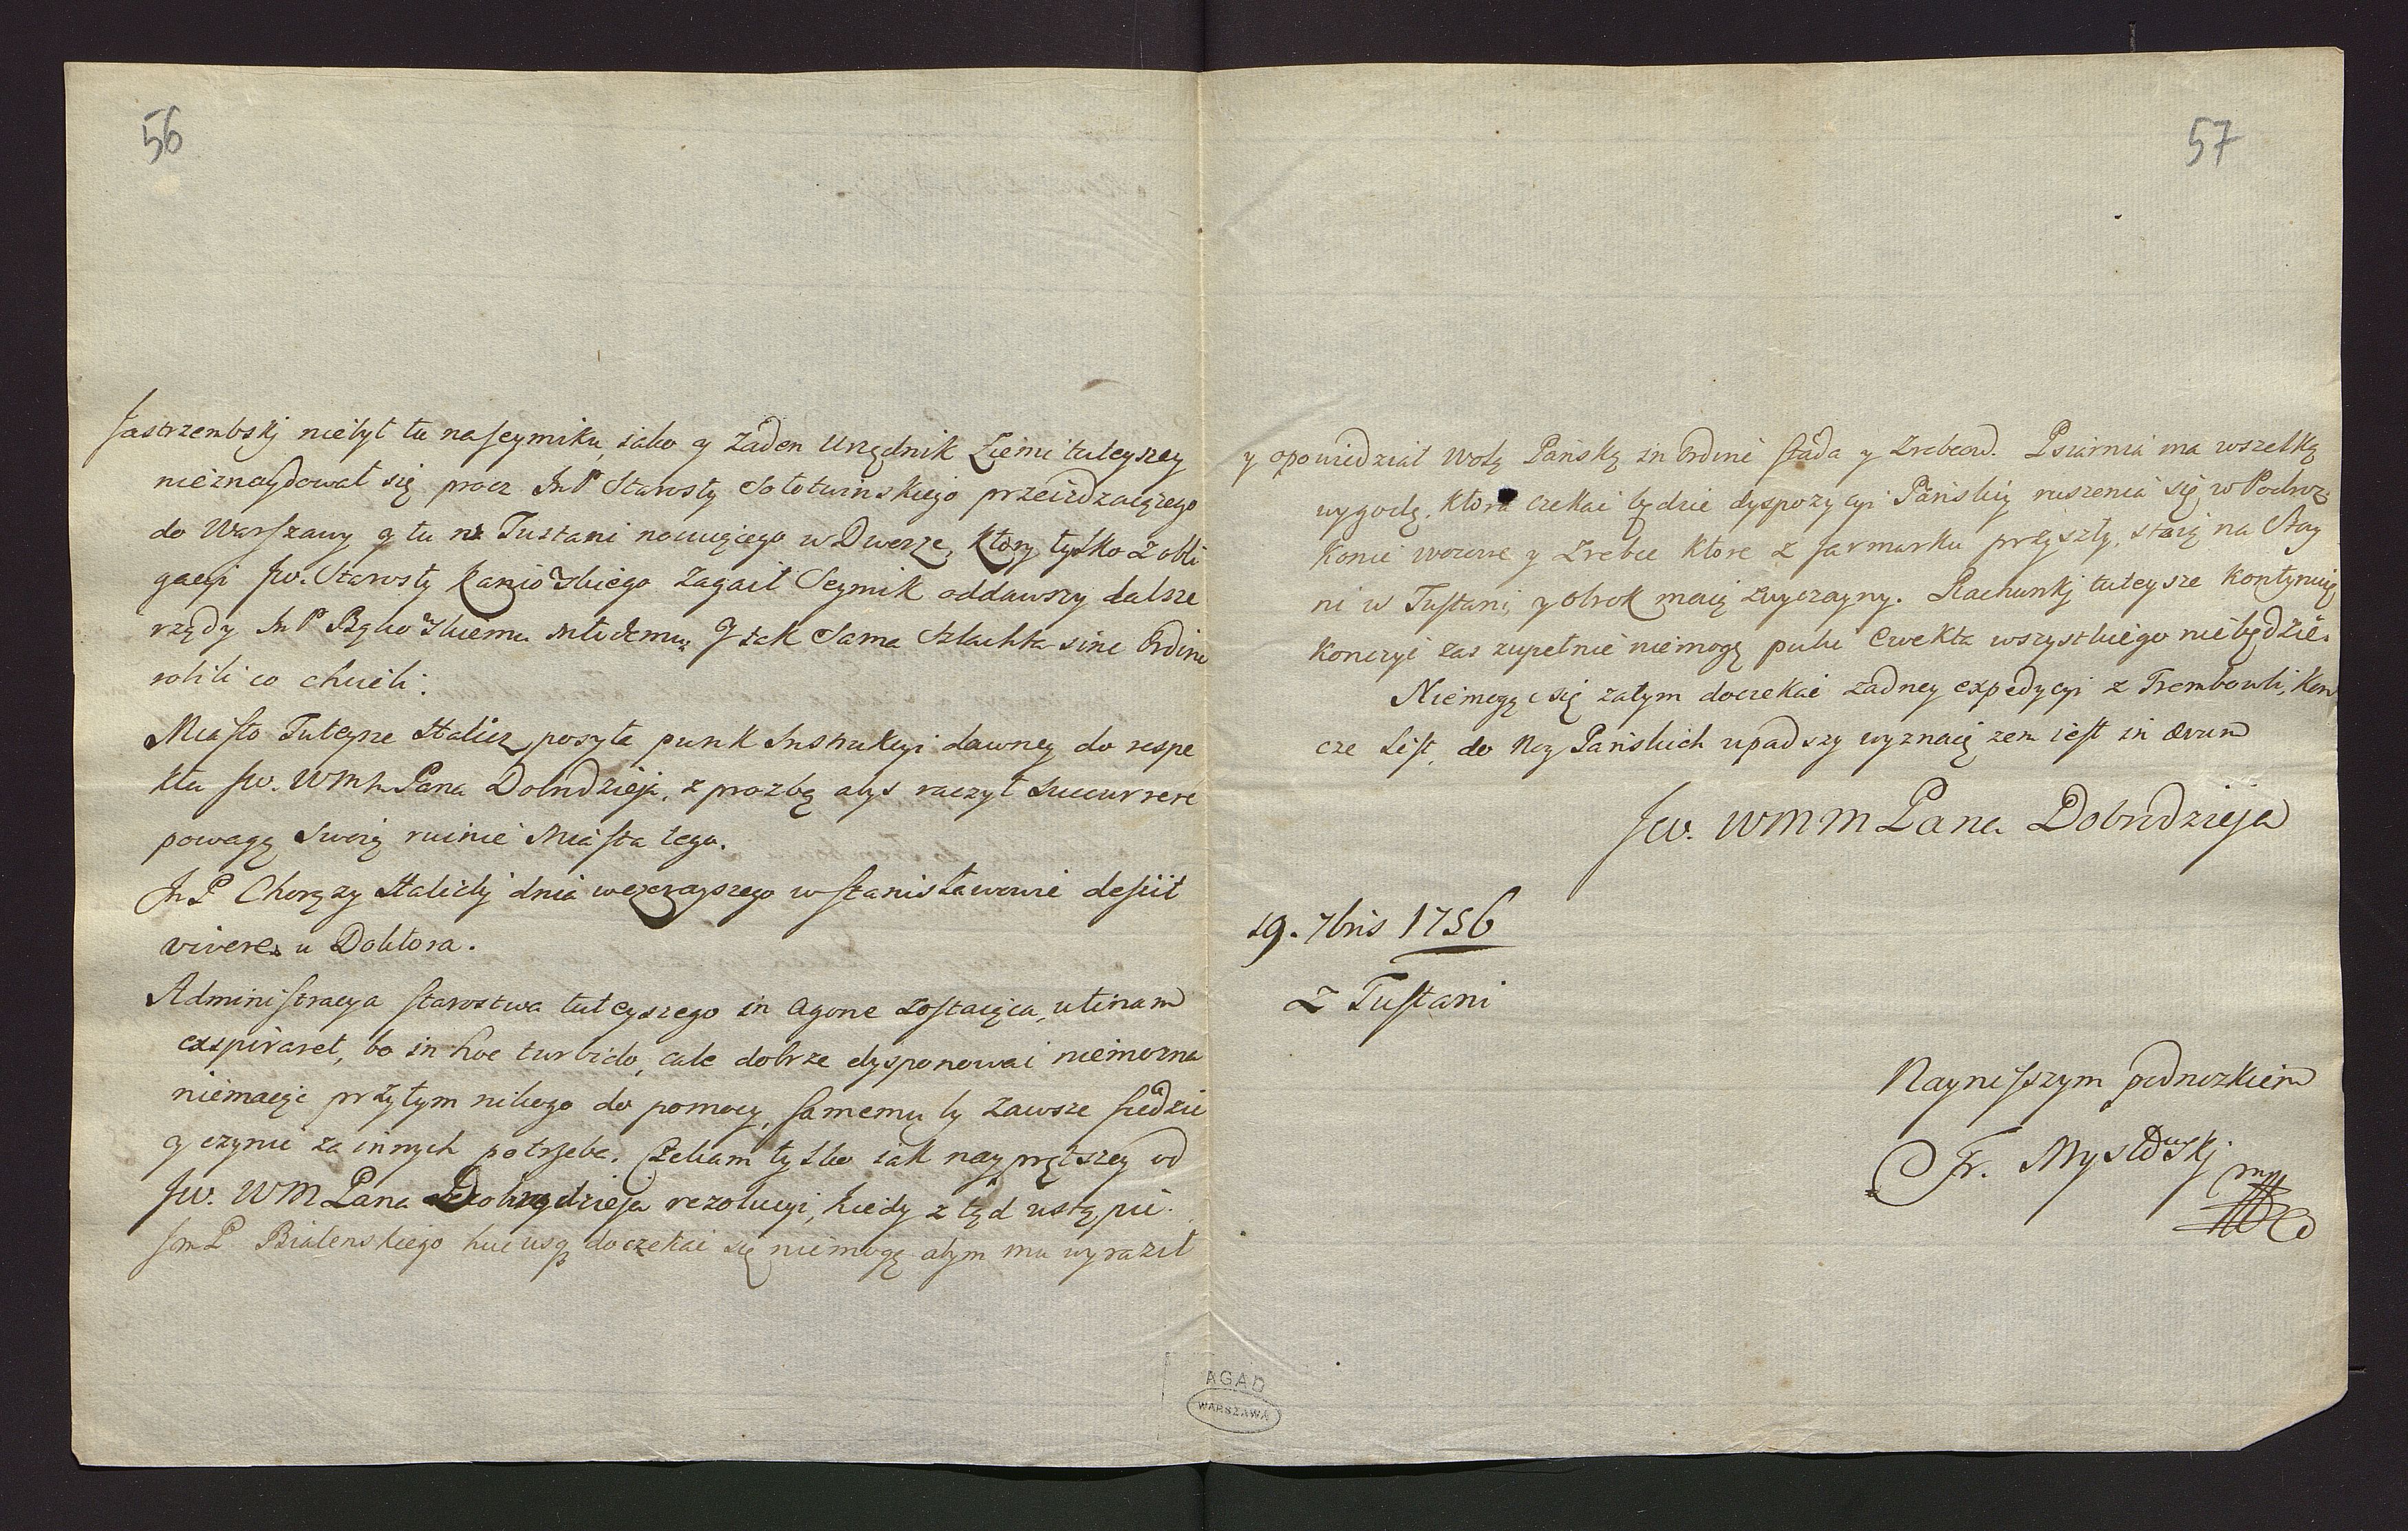 56
Jastrzembskj niebył tu na seymiku, iako y Żaden Urzędnik Ziemi tuteyszey
nieznaydował się procz JmP Starosty Sołotwinskiego przeiezdzaiącego
do Warszawy y tu na Tustani nocuięcego w Dworze, ktory tylko z obli
gacyi Jw. Starosty Kaniowskiego Zagait Seymik oddawszy dalsze
rzędy JmP Bąkowskiemu Młodemu, Y tak Sama Szlachta sine Ordine
robili co chcieli.
Miasto Tuteysze Halicz, posyła punk Instrukcyi dawney do respe
ktu Jw. WMM Pana Dobrdzieja, z prozbą abys raczył succurrere
powagą Swoią ruinie Miasta tego.
JmP Chorązy Halickj dnia wczorayszego w Stanisławowie desiit
vivere u Doktora.
Administracya Starostwa tuteyszego in Agone zostaiąca, utinam
exspiraret, bo in hoc turbido, cale dobrze dysponowac niemozna
niemaiąc przytym nikogo do pomocy, samemu by Zawsze siedzic
y czynic za innych potrzeba. Czekam tylko iak nayprętszey od
Jw. WM Pana Dobrodzieja rezolucyi, kiedy z tąd ustąpic.
JmP Bialenskiego huc usq doczekac się niemogę abym mu wyraził
57
y opowiedział Wolą Panską in Ordine stada y Zrebcow. Psiarnia ma wszelką
wygodę, ktora czekac będzie dyspozycyi Panskiy ruszenia się w Podroz
Konie wozowe y Zrebce ktore z Jarmarku przyszły, staią na Stay
ni w Tustani, y obrok maią zwyczayny. Rachunkj tuteysze kontynuię
konczyc zas zupełnie niemogę puki Ewekta wszystkiego niebędzie.
Niemogąc się zatym doczekac zadney expedycyi z Trembowli, kon
cze List, do Nog Panskich upadszy wyznaię zem iest in Ævum
Jw. WMM Pana Dobrdzieja
19. 7bris 1756
Z Tustani
Nayniszszym podnozkiem
Fr. Mysłowskj
mp
AGAD
WARSZAWA